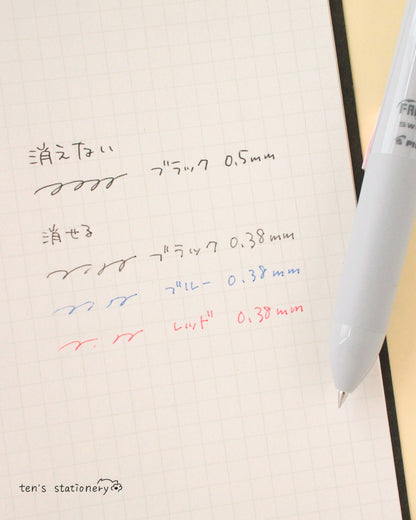 消えない
ブラック 0.5mm
消せる
ブラック 0.38mm
ブルー 0.38mm
レッド 0.38mm
ten's stationery